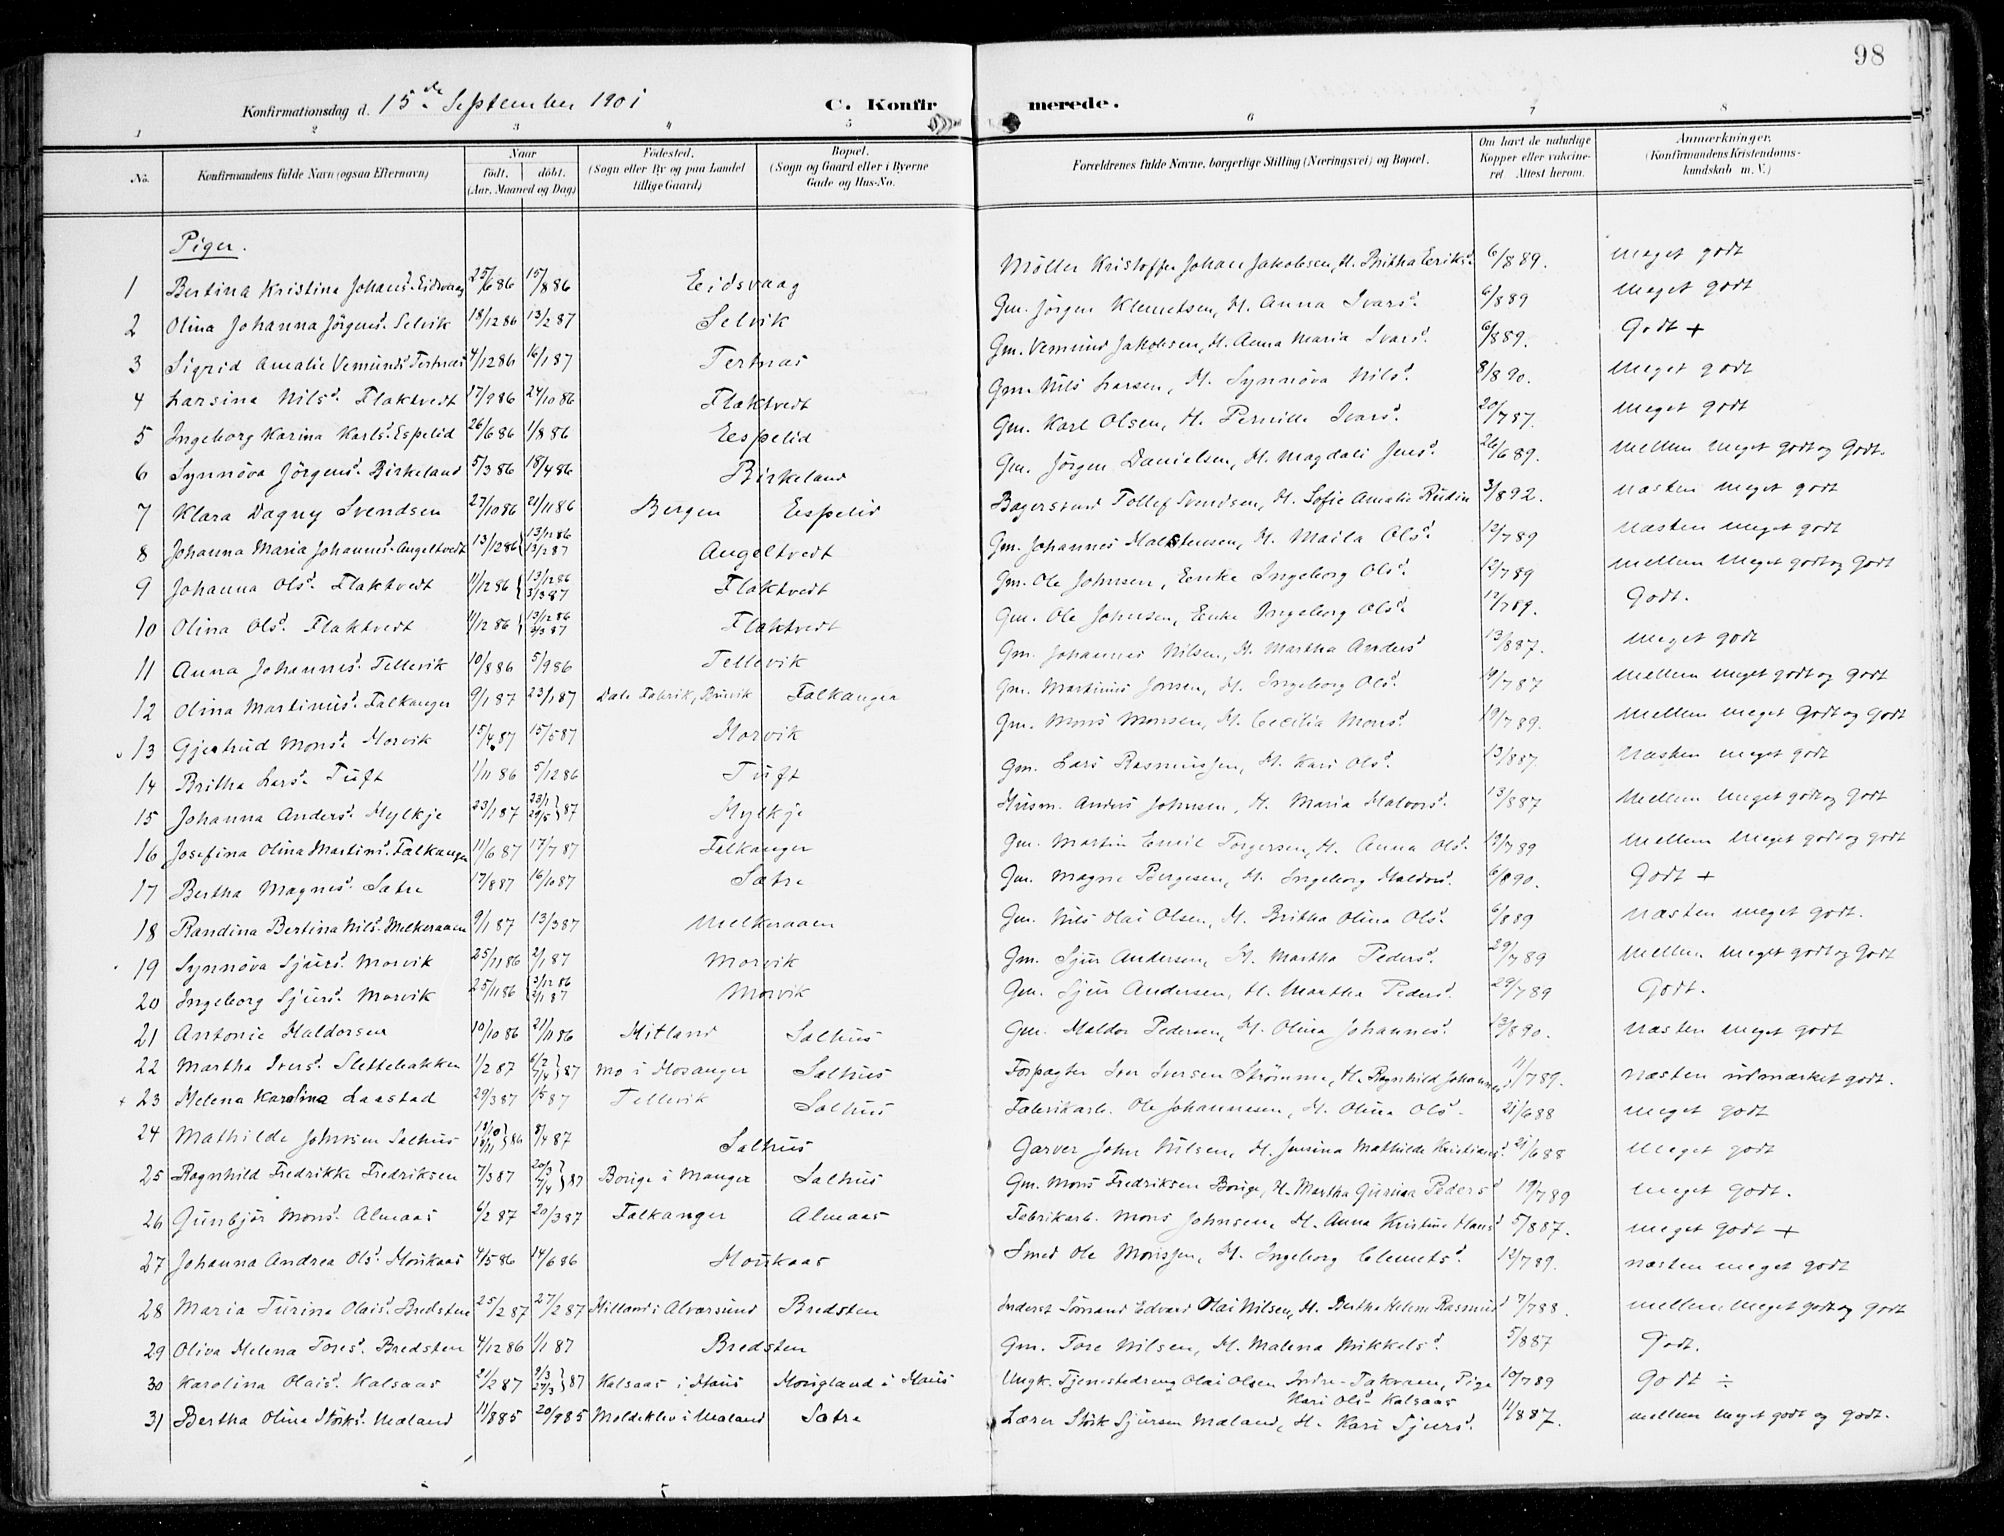 98
Konfirmationsdag d. 15de September 1901 C. Konfirmerede.
1 2 3 4 5 6 7 8
No. Konfirmandens fulde Navn (ogsaa Efternavn) Naar født. døbt. (Aar, Maaned og Dag) Fødested. (Sogn eller By og paa Landet tillige Gaard) Bopæl. (Sogn og Gaard eller i Byerne Gade og Hus-No. Forældrenes fulde Navne, borgerlige Stilling (Næringsvei) og Bopæl. Om havt de naturlige Kopper eller vakcineret. Attest herom. Anmærkninger, (Konfirmandens Kristendomskundskab m. V.)
Piger.
1 Bertina Kristina Johans.d Eidsvaag 25/6 86 15/8 86 Eidsvaag Møller Kristoffer Johan Jakobsen, H. Britha Eriks.d 6/8 89. meget godt
2 Olina Johanna Jörgens.d Selvik 18/12 86 13/2 87 Selvik Gm. Jörgen Klemetsen, H. Anna Ivars.d 6/8 89 meget godt
3 Sigrid Amalie Vemunds.d Tertnæs 4/12 86 16/1 87 Tertnæs Gm. Vemund Jakobsen, H. Anna Maria Ivars.d 6/8 89. Godt +
4 Larsina Nils.d Flaktvedt 17/9 86 24/10 86 Flaktvedt Gm. Nils Larsen, H. Synnöva Nils.d 8/8 90. meget godt
5 Ingeborg Karina Karls.d Espelid 26/6 86 1/8 86 Eespelid Gm. Karl Olsen, H. Pernille Ivars.d 20/7 87. meget godt
6 Synnöva Jörgens.d Birkeland 5/3 86 18/4 86 Birkeland Gm. Jörgen Danielsen, H. Magdali Jens.d 26/6 89. mellem meget godt og Godt.
7 Klara Dagny Svendsen 27/10 86 21/11 86 Bergen Eespelid Bagersvend Tollef Svendsen, H. Sofie Amalie Rudin 3/8 92. næsten meget godt
8 Johanna Maria Johannes.d Angeltvedt 13/12 86 13/12 86 13/2 87 Angeltvedt Gm. Johannes Halstensen, H. Maila Ols.d 12/7 89 næsten meget godt
9 Johanna Ols.d Flaktvedt 11/12 86 13/12 86 3/3 87 Flaktvedt Gm. Ole Johnsen, Enke Ingeborg Ols.d 12/7 89 mellem meget godt og Godt
10 Olina Ols.d Flaktvedt 11/12 86 13/12 86 3/3 87 Flaktvedt Gm. Ole Johnsen, Enke Ingeborg Ols.d 12/7 89. Godt.
11 Anna Johannes.d Tellevik 10/8 86 5/9 86 Tellevik Gm. Johannes Nilsen, H. Martha Anders.d 13/8 87. meget godt
12 Olina Martinus.d Falkanger 9/1 87 23/1 87 Dale Fabrik, Bruvik Falkanger Gm. Martinus Jonsen, H. Ingeborg Ols.d 19/7 87 mellem meget godt og godt
13 Gjertrud Mons.d Morvik 15/4 87 15/5 87 Morvik Gm. Mons Monsen, H. Cecilia Mons.d 19/7 89. mellem meget Godt og Godt
14 Britha Lars.d Tuft 1/11 86 5/12 86 Tuft Gm. Lars Rasmussen, H. Kari Ols.d 13/8 87. næsten meget godt
15 Johanna Anders.d Hylkje 23/1 87 23/1 29/5 } 87 Hylkje Husm. Anders Johnsen, H. Maria Halvors.d 13/8 87 mellem meget godt og Godt
16 Josefina Olina Martins.d Falkanger 11/6 87 17/7 87 Falkanger Gm. Martin Emil Torgersen, H. Anna Ols.d 19/7 89 mellem meget godt og Godt
17 Bertha Magnes.d Sætre 17/8 87 16/10 87 Sætre Gm. Magne Bergesen, H. Ingeborg Haldors.d 6/8 90. Godt +
18 Randina Bertina Nils.d Melkeraaen 9/1 87 13/3 87 Melkeraaen Gm. Nils Olai Olsen, H. Britha Olina Ols.d 6/8 89 næsten meget godt.
19 Synnöva Sjurs.d Morvik 25/11 86 2/1 87 Morvik Gm. Sjur Andersen, H. Martha Peders.d 29/7 89 mellem meget godt og Godt
20 Ingeborg Sjurs.d Morvik 25/11 86 3/12 86 2/1 87 Morvik Gm. Sjur Andersen, H. Martha Peders.d 29/7 89 Godt.
21 Antonie Haldorsen 10/10 86 21/11 86 Hitland Salhus Gm. Haldor Pedersen, H. Olina Johannes.d 13/8 90. næsten meget godt
22 Martha Ivers.d Slettebakken 1/2 87 6/2 7/4 } 87 Mo i Hosanger Salhus Forpagter Iver Iversen Strömme, H. Ragnhild Johannes.d 11/7 89. næsten udmærket godt.
23 Helena Karolina Laastad 29/3 87 1/5 87 Tellevik Salhus Fabrikarb. Ole Johannesen, H. Olina Ols.d 21/6 88 meget godt
24 Mathilde Johnsen Salhus 18/10 18/11 } 86 8/4 87 Salhus Garver John Nilsen, H. Jensina Mathilde Kristians.d 21/6 88 meget godt
25 Ragnhild Fredrikke Fredriksen 7/3 87 20/3 7/4 } 87 Borige i Manger Salhus Gm. Mons Fredriksen Borige, H. Martha Gurina Peders.d 19/7 89 meget godt.
26 Gunbjør Mons.d Almaas 6/2 87 20/3 87 Falkanger Almaas Fabrikarb. Mons Johnsen, H. Anna Kristine Hans.d 5/8 87. meget godt +
27 Johanna Andrea Ols.d Houkaas 4/5 86 14/6 86 Houkaas Smed Ole Monssen, H. Ingeborg Clemets.d 12/7 89. næsten meget godt
28 Maria Turina Olais.d Bredsten 25/2 87 27/2 87 Hilland i Alversund Bredsten Inderst Sømand Edvard Olai Nilsen, H. Bertha Helene Rasmus.d 7/7 88. mellem meget godt og godt
29 Oliva Helena Tores.d Bredsten 4/12 86 1/1 87 Bredsten Gm. Tore Nilsen, H. Malena Mikkels.d 5/8 87 Godt.
30 Karolina Olais.d Kalsaas 21/2 87 9/3 27/3 } 87 Kalsaas i Haus Hougland i Haus Ungk. Tjenestedreng Olai Olsen Indre-Takvam, Pige Kari Ols.d Kalsaas 10/7 89 Godt ÷
31 Bertha Olina Störks.d Mæland 11/8 85 20/9 85 Moldeklev i Mæland Sætre Lærer Störk Sjursen Mæland, H. Kari Sjurs.d 11/8 87. mellem meget godt og godt.